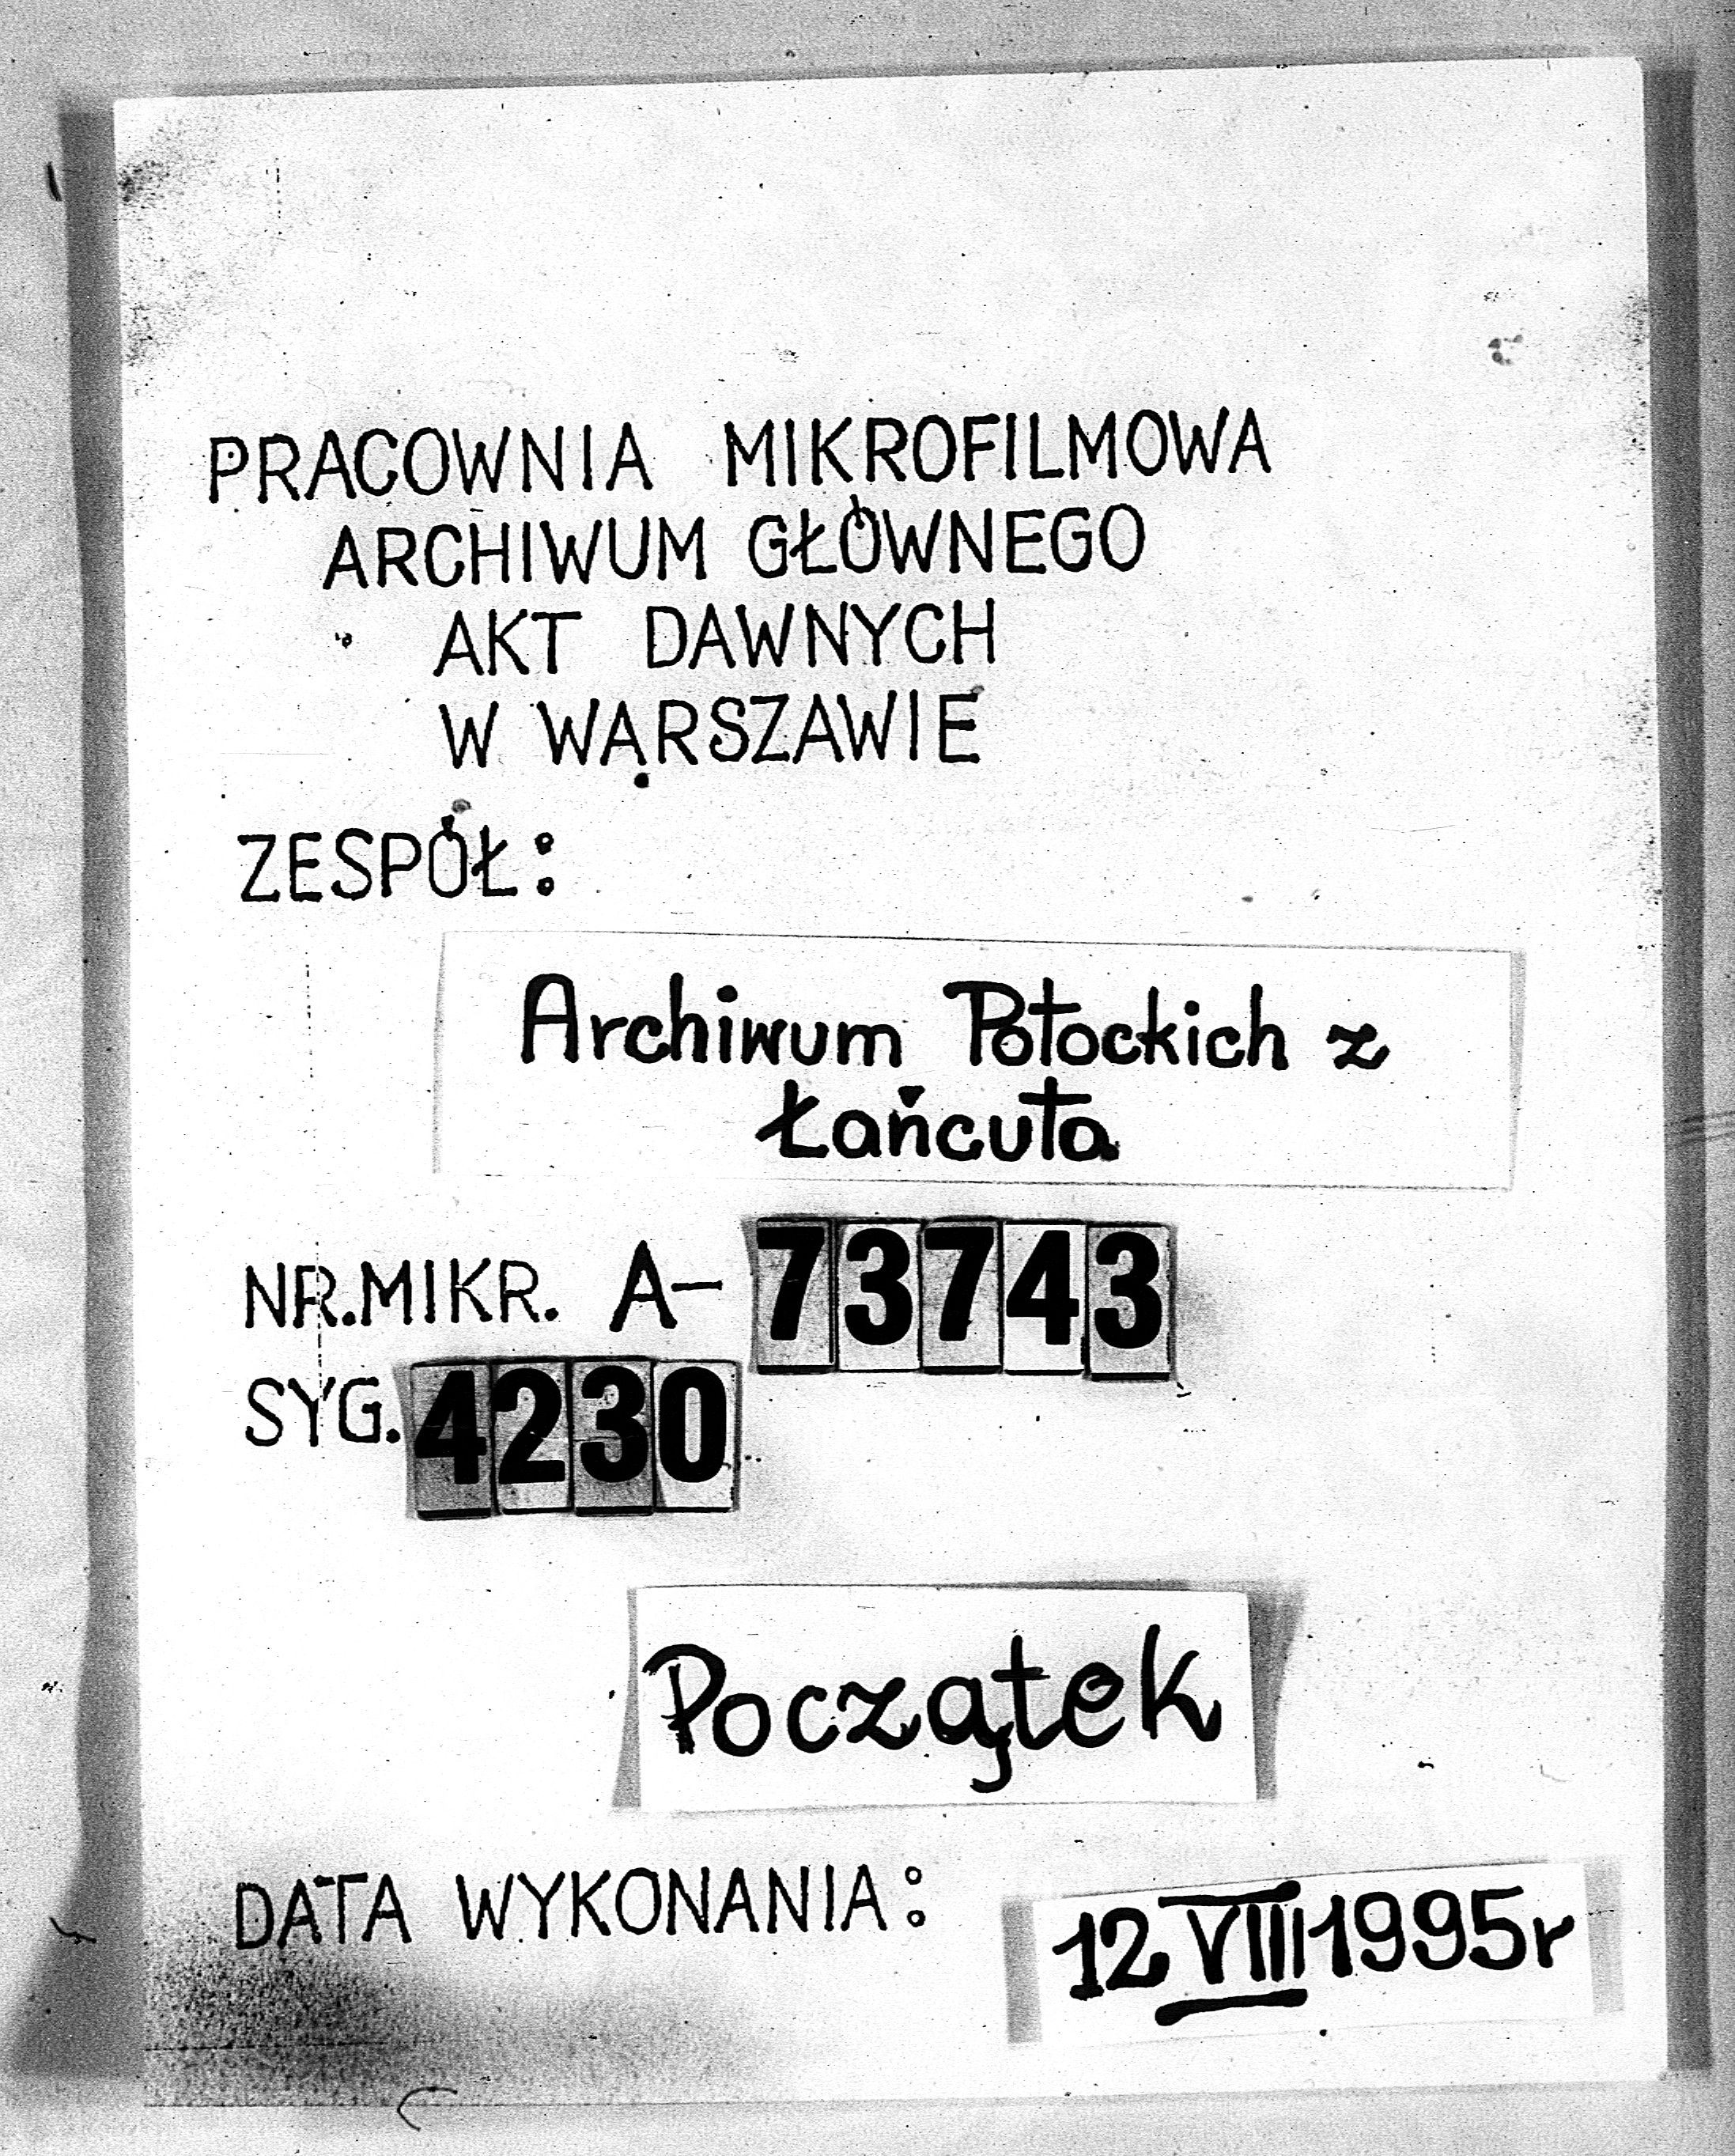 PRACOWNIA MIKROFILMOWA
ARCHIWUM GŁÓWNEGO
AKT DAWNYCH
W WARSZAWIE
ZESPÓŁ:
Archiwum Potockich z
Łańcuta
NR.MIKR. A-73743
SYG. 4230
Początek
DATA WYKONANIA: 12 VIII 1995r